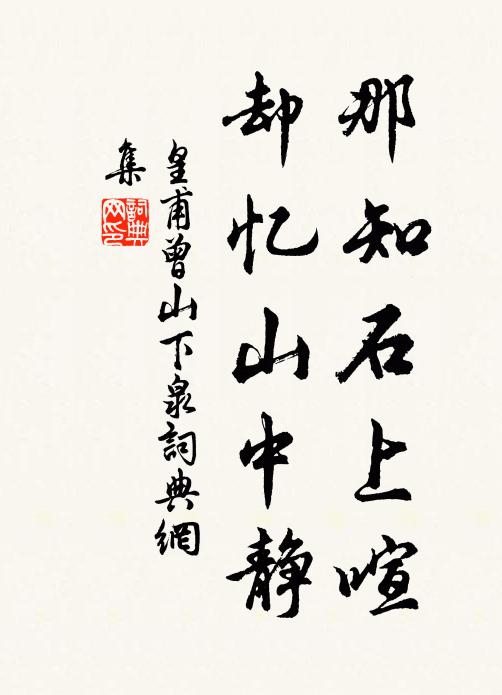 那知石上喧
却忆山中静
皇甫曾山下泉詞典網
集
詞典
网印